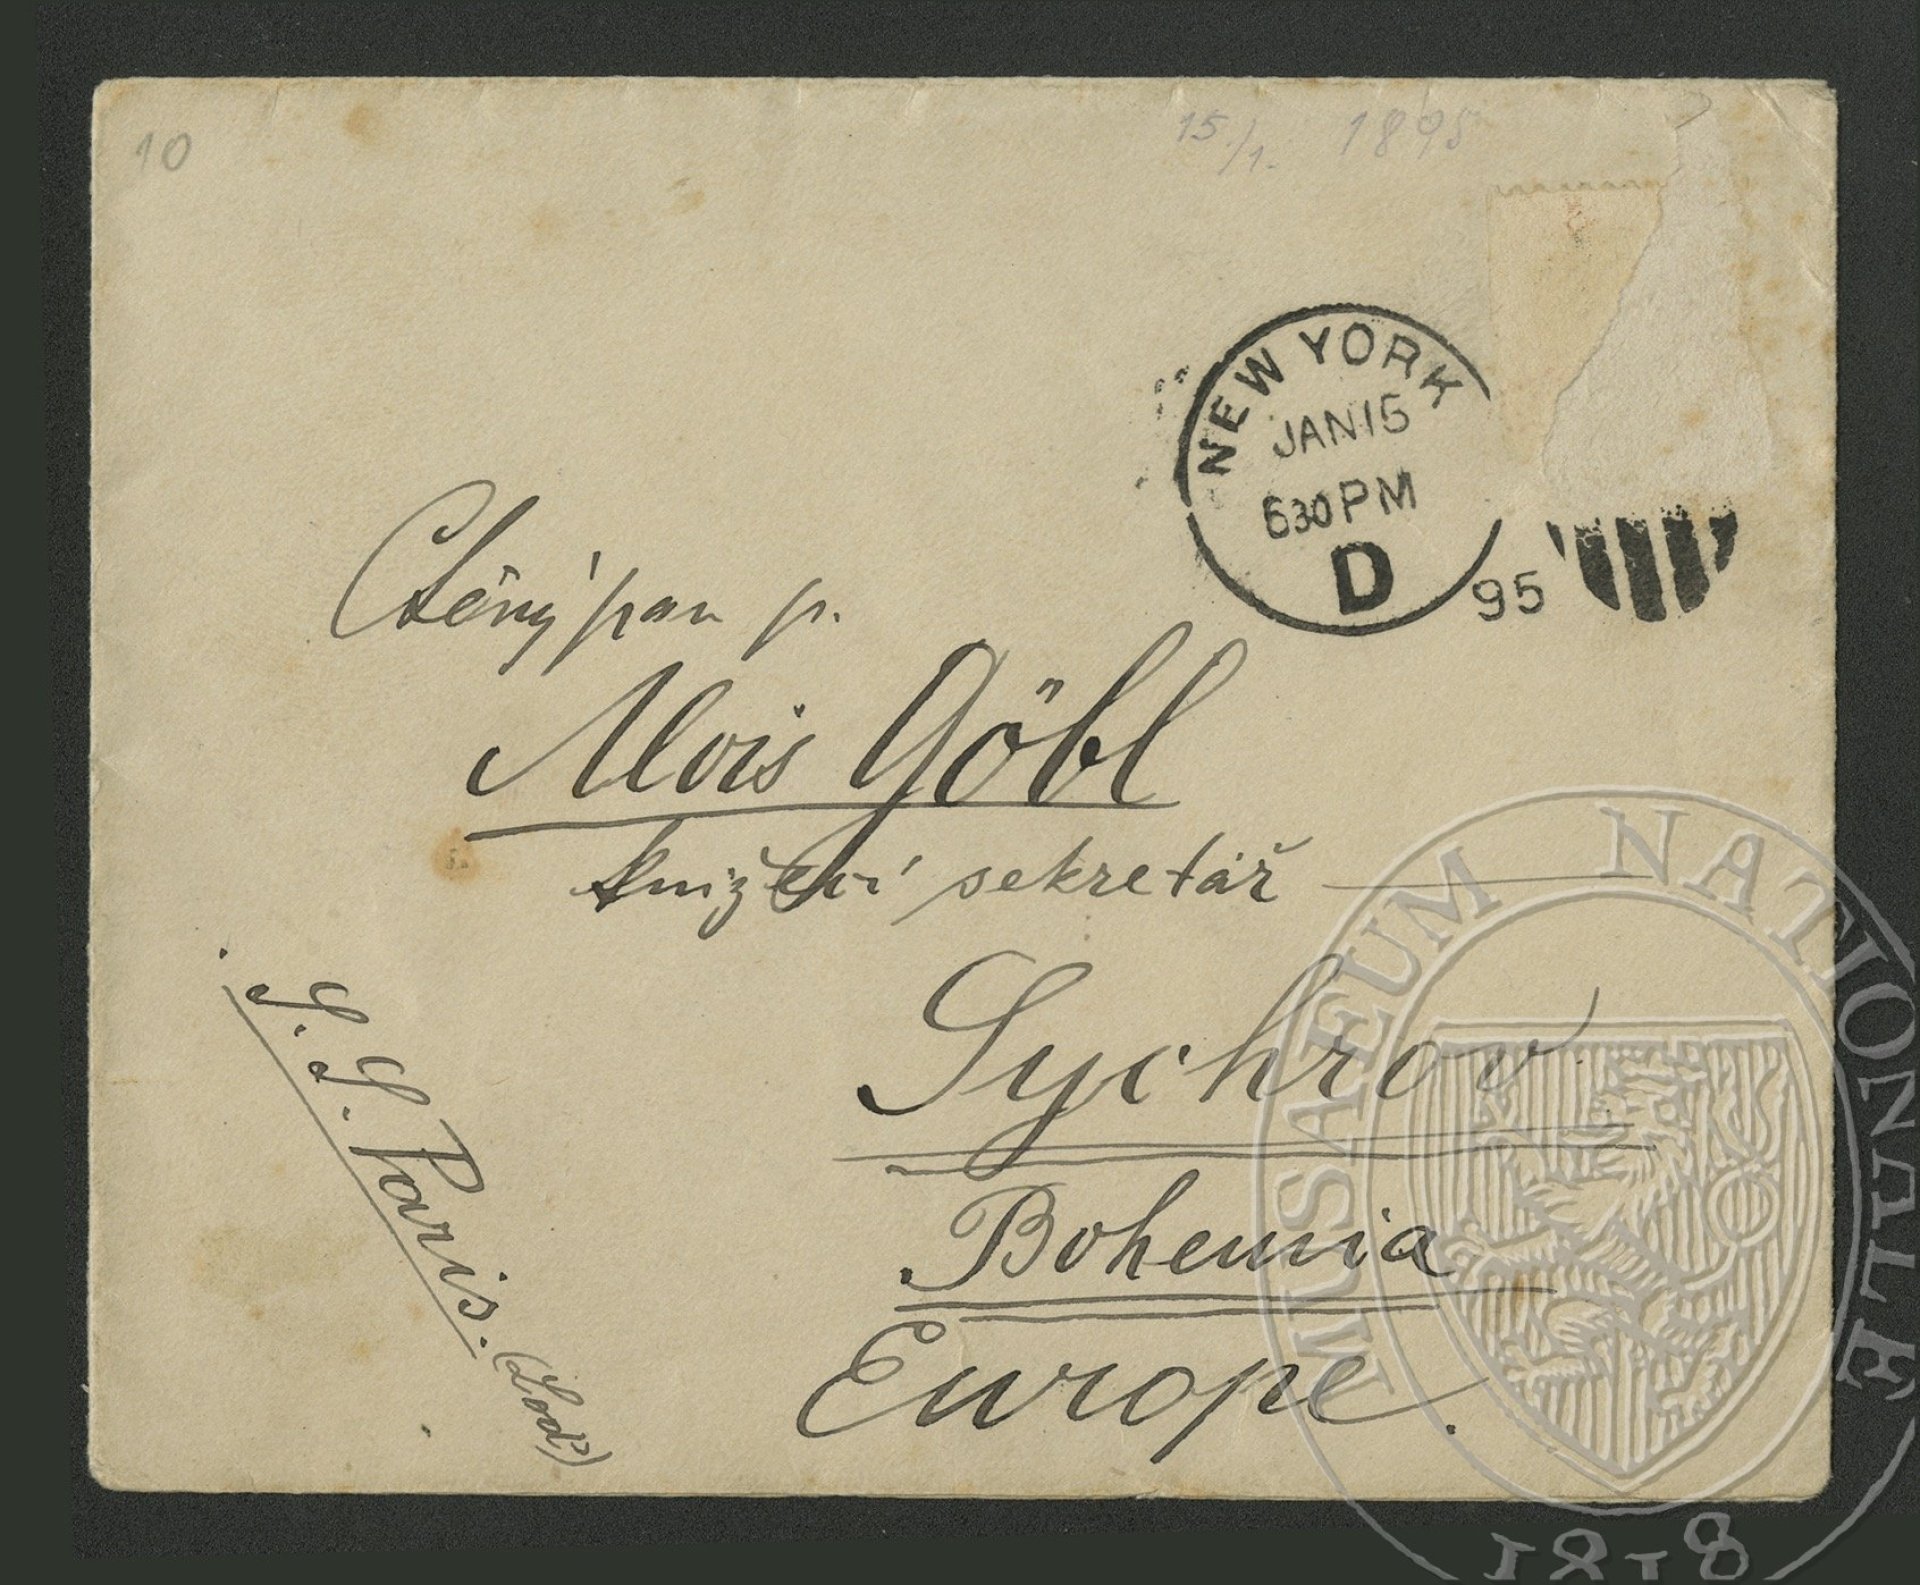 10
15./1. 1895
NEW YORK
JAN 15
630 PM
D
95
Ctěný pan p.
Alois Göbl
knížecí sekretář
Sychrov
Bohemia
Europe.
S. S. Paris. (Loď)
MUSAEUM NATIONALE
1818